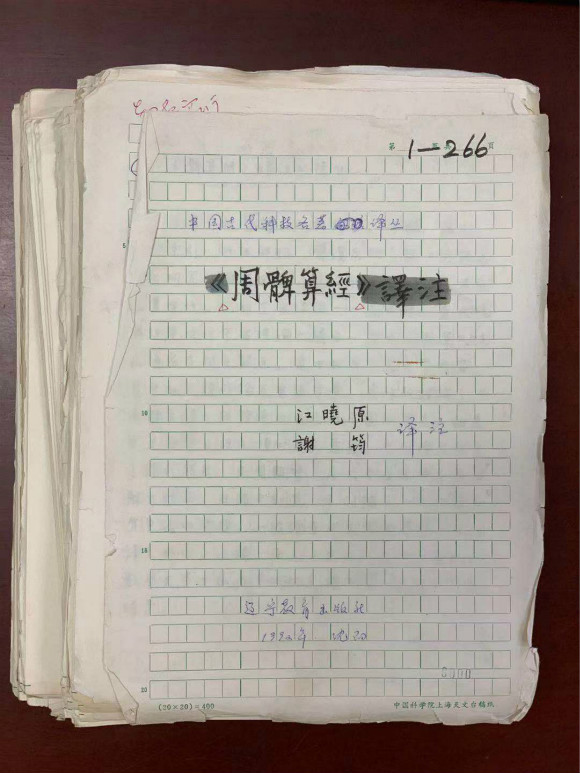 第 页
1—266
中国古代科技名著译丛
《周髀算經》譯注
江曉原
謝筠
译注
辽宁教育出版社
(20×20)=400
中国科学院上海天文台稿纸
5
10
15
20